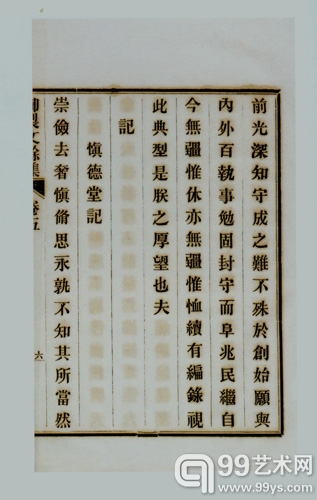 前光深知守成之難不殊於創始願與
內外百執事勉固封守而阜兆民繼自
今無疆惟休亦無疆惟恤續有編錄視
此典型是朕之厚望也夫
記
愼德堂記
崇儉去奢愼脩思永孰不知其所當然
御製文餘集
卷五
六
99艺术网
www.99ys.com